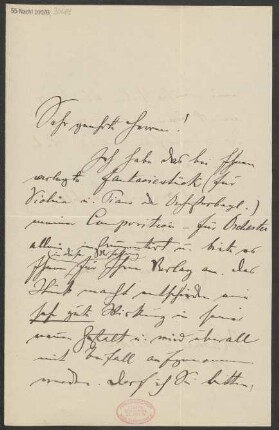 55 Nachl 100/B,
Sehr geehrte Herren!
Ich habe das bei Ihnen
verlegte Fantasiestück (für
Violine u. Piano oder Orchesterbegl.)
meiner Composition für Orchester
allein instrumentirt u. biete es
in dieser Gestalt
Ihnen für Ihren Verlag an. Das
Stück macht entschieden eine
sehr gute Wirkung in seiner
neuen Gestalt u. wird überall
mit Beifall aufgenommen
werden. Darf ich Sie bitten,